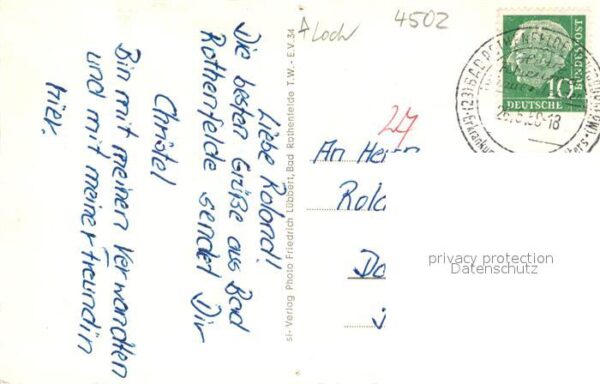 Liebe Roland!
Die besten Grüße aus Bad
Rothenfelde sendet Dir
Christel
Bin mit meinen Verwandten
und mit meiner Freundin
hier.
si-Verlag Photo Friedrich Lübbert, Bad Rothenfelde T.W. - E.V. 34
A Loch
4502
27
An Herrn
Rola
Da
privacy protection
Datenschutz
DEUTSCHE
BUNDESPOST
10
(23) BAD ROTHENFELDE